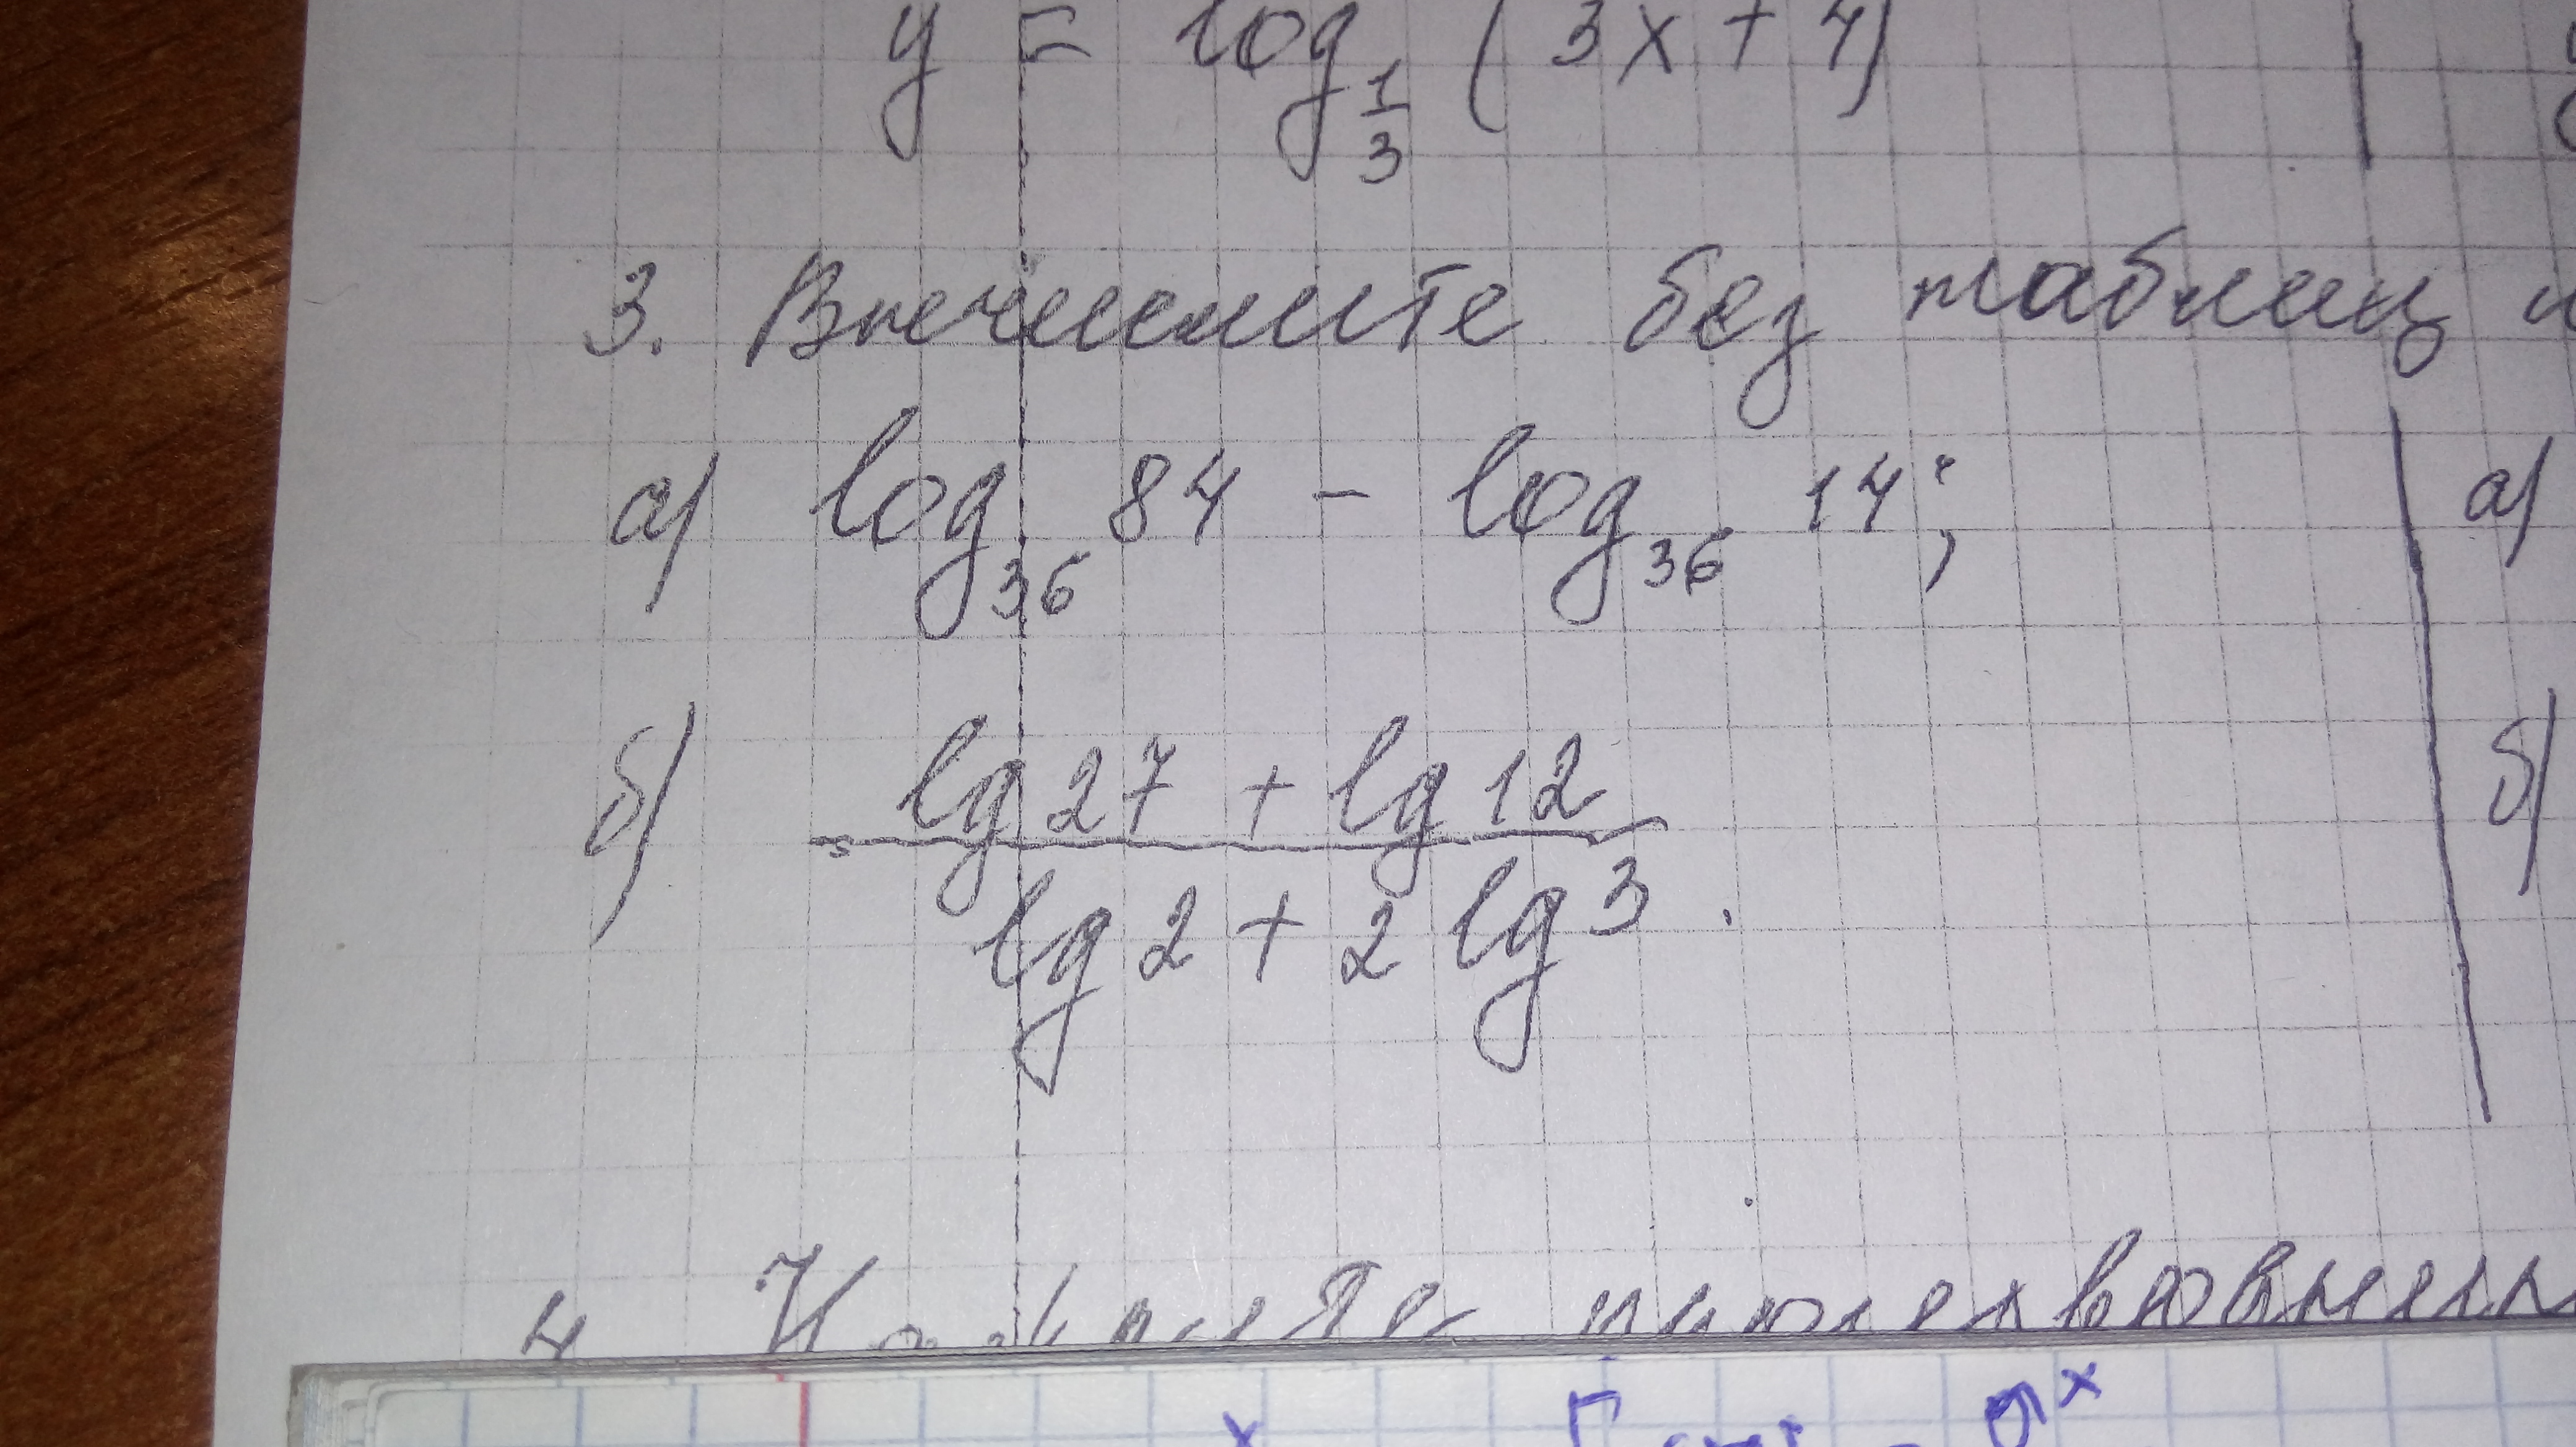 y = log 1/3 (3x + 4)
3. Вычислите без таблиц
а) log₃₆ 84 − log₃₆ 14;
а)
б) (lg 27 + lg 12) / (lg 2 + 2 lg 3).
б)
4